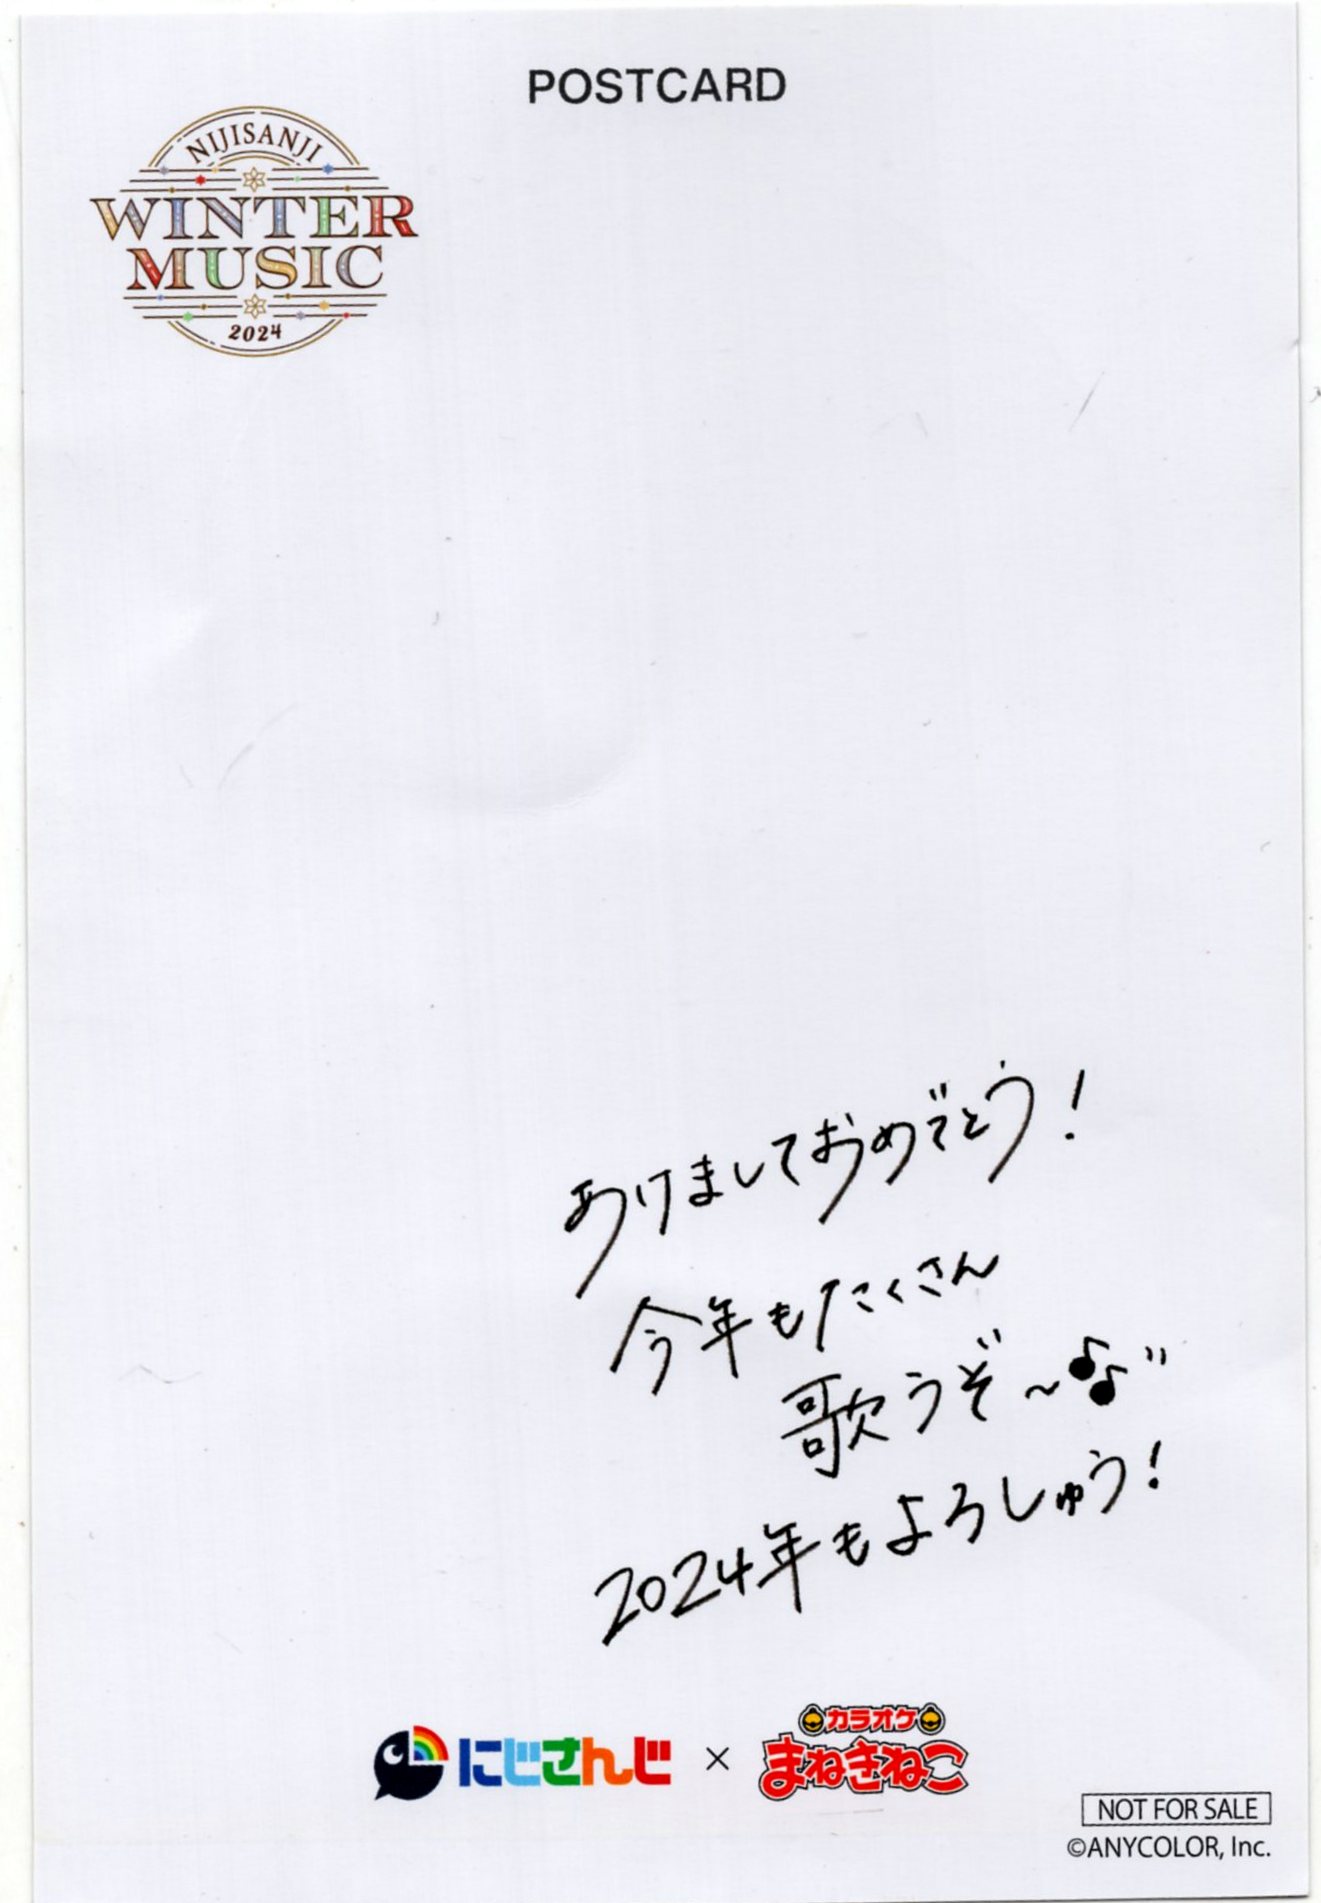 POSTCARD
NIJISANJI
WINTER
MUSIC
2024
あけましておめでとう！
今年もたくさん
歌うぞ～♪♪"
2024年もよろしゅう！
にじさんじ × カラオケ まねきねこ
NOT FOR SALE
©ANYCOLOR, Inc.